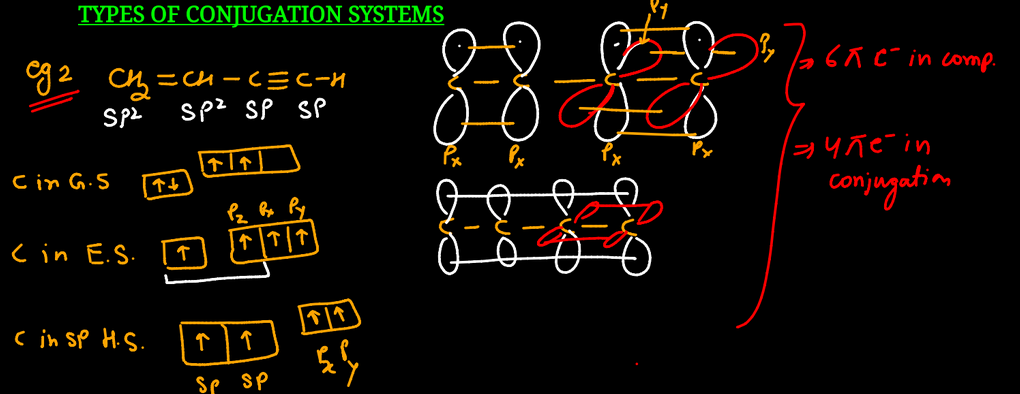 TYPES OF CONJUGATION SYSTEMS
eg 2
CH2 = CH - C ≡ C - H
SP2 SP2 SP SP
C in G.S ↑↓ ↑ ↑
Pz Px Py
C in E.S. ↑ ↑ ↑ ↑
C in SP H.S. ↑ ↑ ↑ ↑
SP SP Px Py
Py
Py
C - C - C - C
Px Px Px Px
C - C - C - C
⇒ 6 π e- in comp.
⇒ 4 π e- in
conjugation